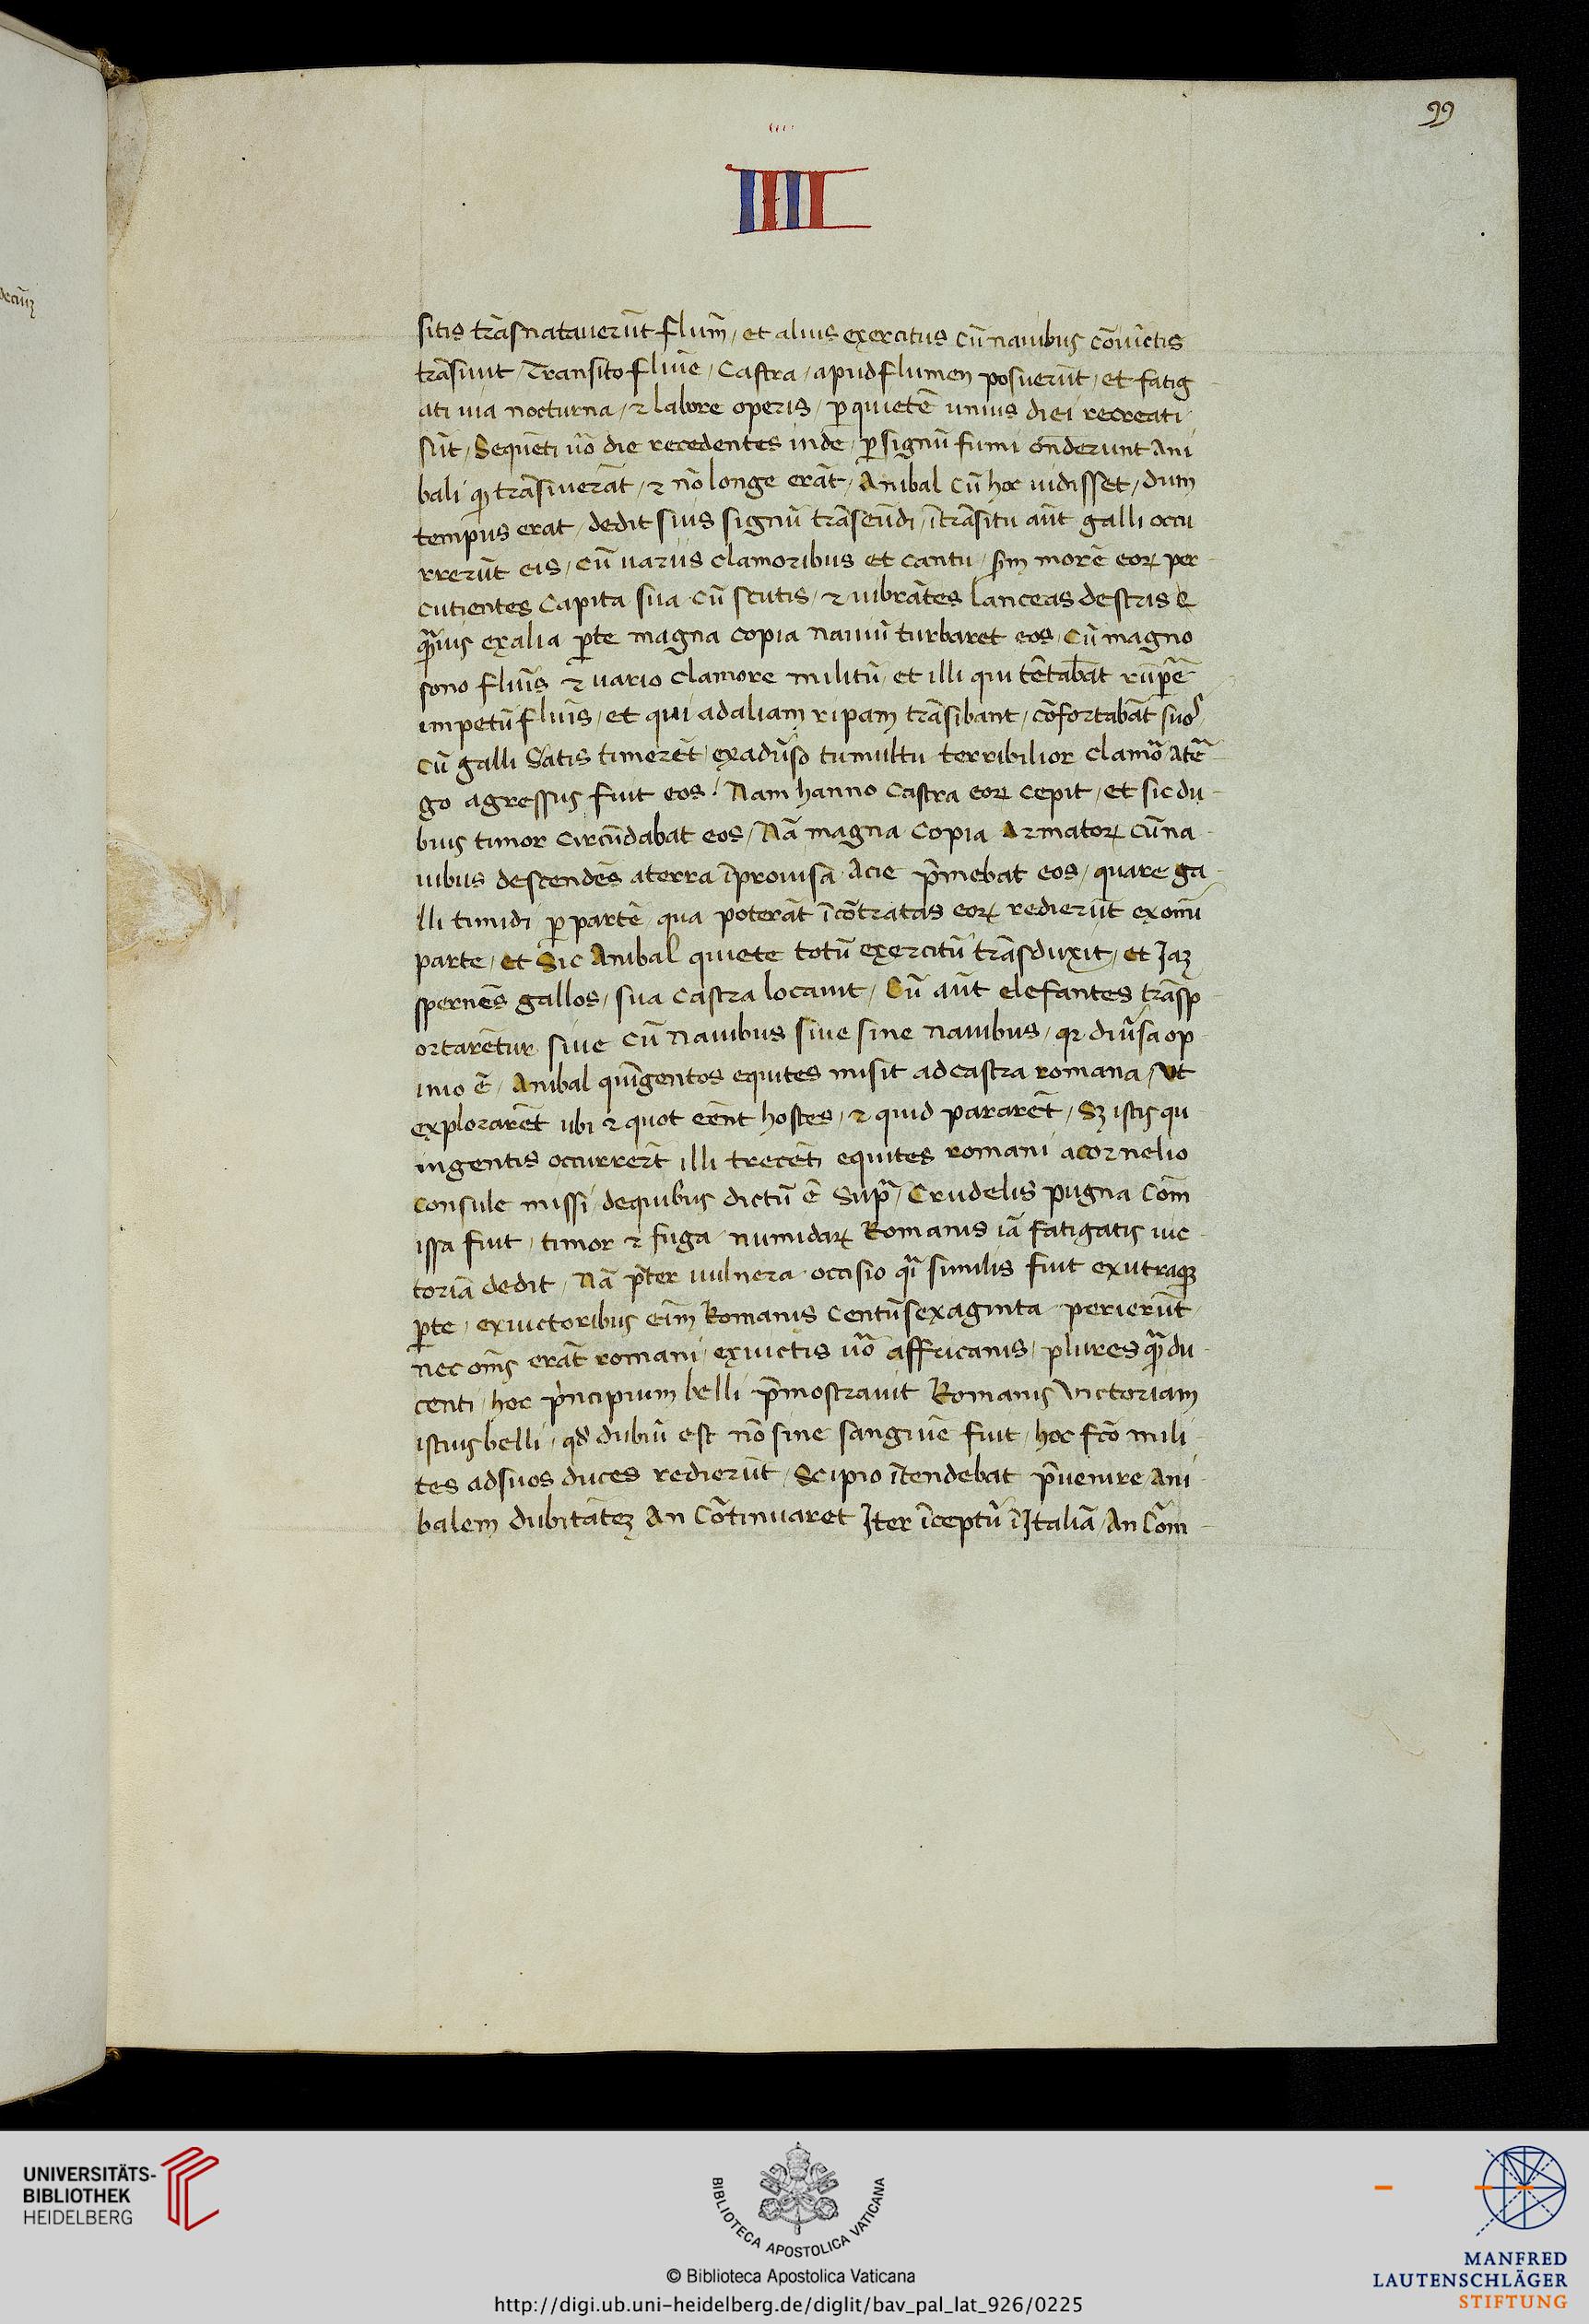 99
IIII
IIII
sitis trāsnatauerūt flum̄ / et alius exercitus cū nauibus cōuīctis
trāsiuit / Transito fluīe / Castra / apud flumen posuerūt / et fatig
ati uia nocturna / ⁊ labore operis / ꝑ quietē unius diei recreati
sūt / Sequēti ūo die recedentes inde / ꝑ signū fumi on̄derunt Ani
bali qꝫ trāsiuerāt / ⁊ nō longe erāt / Anibal cū hoc uidisset / dum
tempus erat / dedit suis signū trāseūdi / ī trāsitu aūt galli occu
rrerūt eis / cū uariis clamoribus et cantu / scd̄m morē eoꝝ per
cutientes Capita sua cū scutis / ⁊ uibrātes lanceas dextris &
quāuis ex alia ꝑte magna copia nauiū turbaret eos / cū magno
sono fluīs ⁊ uario clamore militū / et illi qui tētabāt rūpē
impetū fluīs / et qui ad aliam ripam trāsibant / cōfortabāt suos
cū galli Satis timerēt ex aduso tumultu terribilior clamor̄ a t̄e
go agressus fuit eos / Nam hanno Castra eoꝝ cepit / et sic du
bius timor circūdabat eos / Nā magna copia Armatoꝝ cū na
uibus descendēs a terra īprouisa Acie p̄mebat eos / quare ga
lli timidi ꝑ partē qua poterāt ī cōtratas eoꝝ redierūt ex omī
parte / et Sic Anibal quiete totū exercitū trāsduxit / et Jaꝫ
spernēs gallos / sua castra locauit / Cū aūt elefantes trāsp
ortarētur siue cū nauibus siue sine nauibus / qꝛ diūsa op
inio ē / Anibal quīgentos equites misit ad castra romana / Vt
explorarēt ubi ⁊ quot eēnt hostes / ⁊ quid pararēt / Sꝫ istis qu
ingentis occurrerūt illi trecēti equites romani a cornelio
Consule missi / de quibus dictū ē Supra / Crudelis pugna Com̄
issa fuit / timor ⁊ fuga numidaꝝ Romanis iā fatigatis uic
toriā dedit / Nā p̄ter uulnera occisio quasi similis fuit ex utraqꝫ
ꝑte / ex uictoribus eīm Romanis Centū sexaginta perierūt
nec om̄s erāt romani / ex uictis ūo affricanis / plures quā du
centi / hoc prīcipium belli p̄mostrauit Romanis Victoriam
istius belli / qd̄ dubiū est nō sine sanguīe fuit / hoc fc̄o mili
tes ad suos duces redierūt / Scipio ītendebat p̄uenire Ani
balem dubitāteꝫ An Cōtinuaret Iter īceptū ī Italiā / An Com̄
UNIVERSITÄTS-
BIBLIOTHEK
HEIDELBERG
BIBLIOTECA APOSTOLICA VATICANA
© Biblioteca Apostolica Vaticana
http://digi.ub.uni-heidelberg.de/diglit/bav_pal_lat_926/0225
MANFRED
LAUTENSCHLÄGER
STIFTUNG